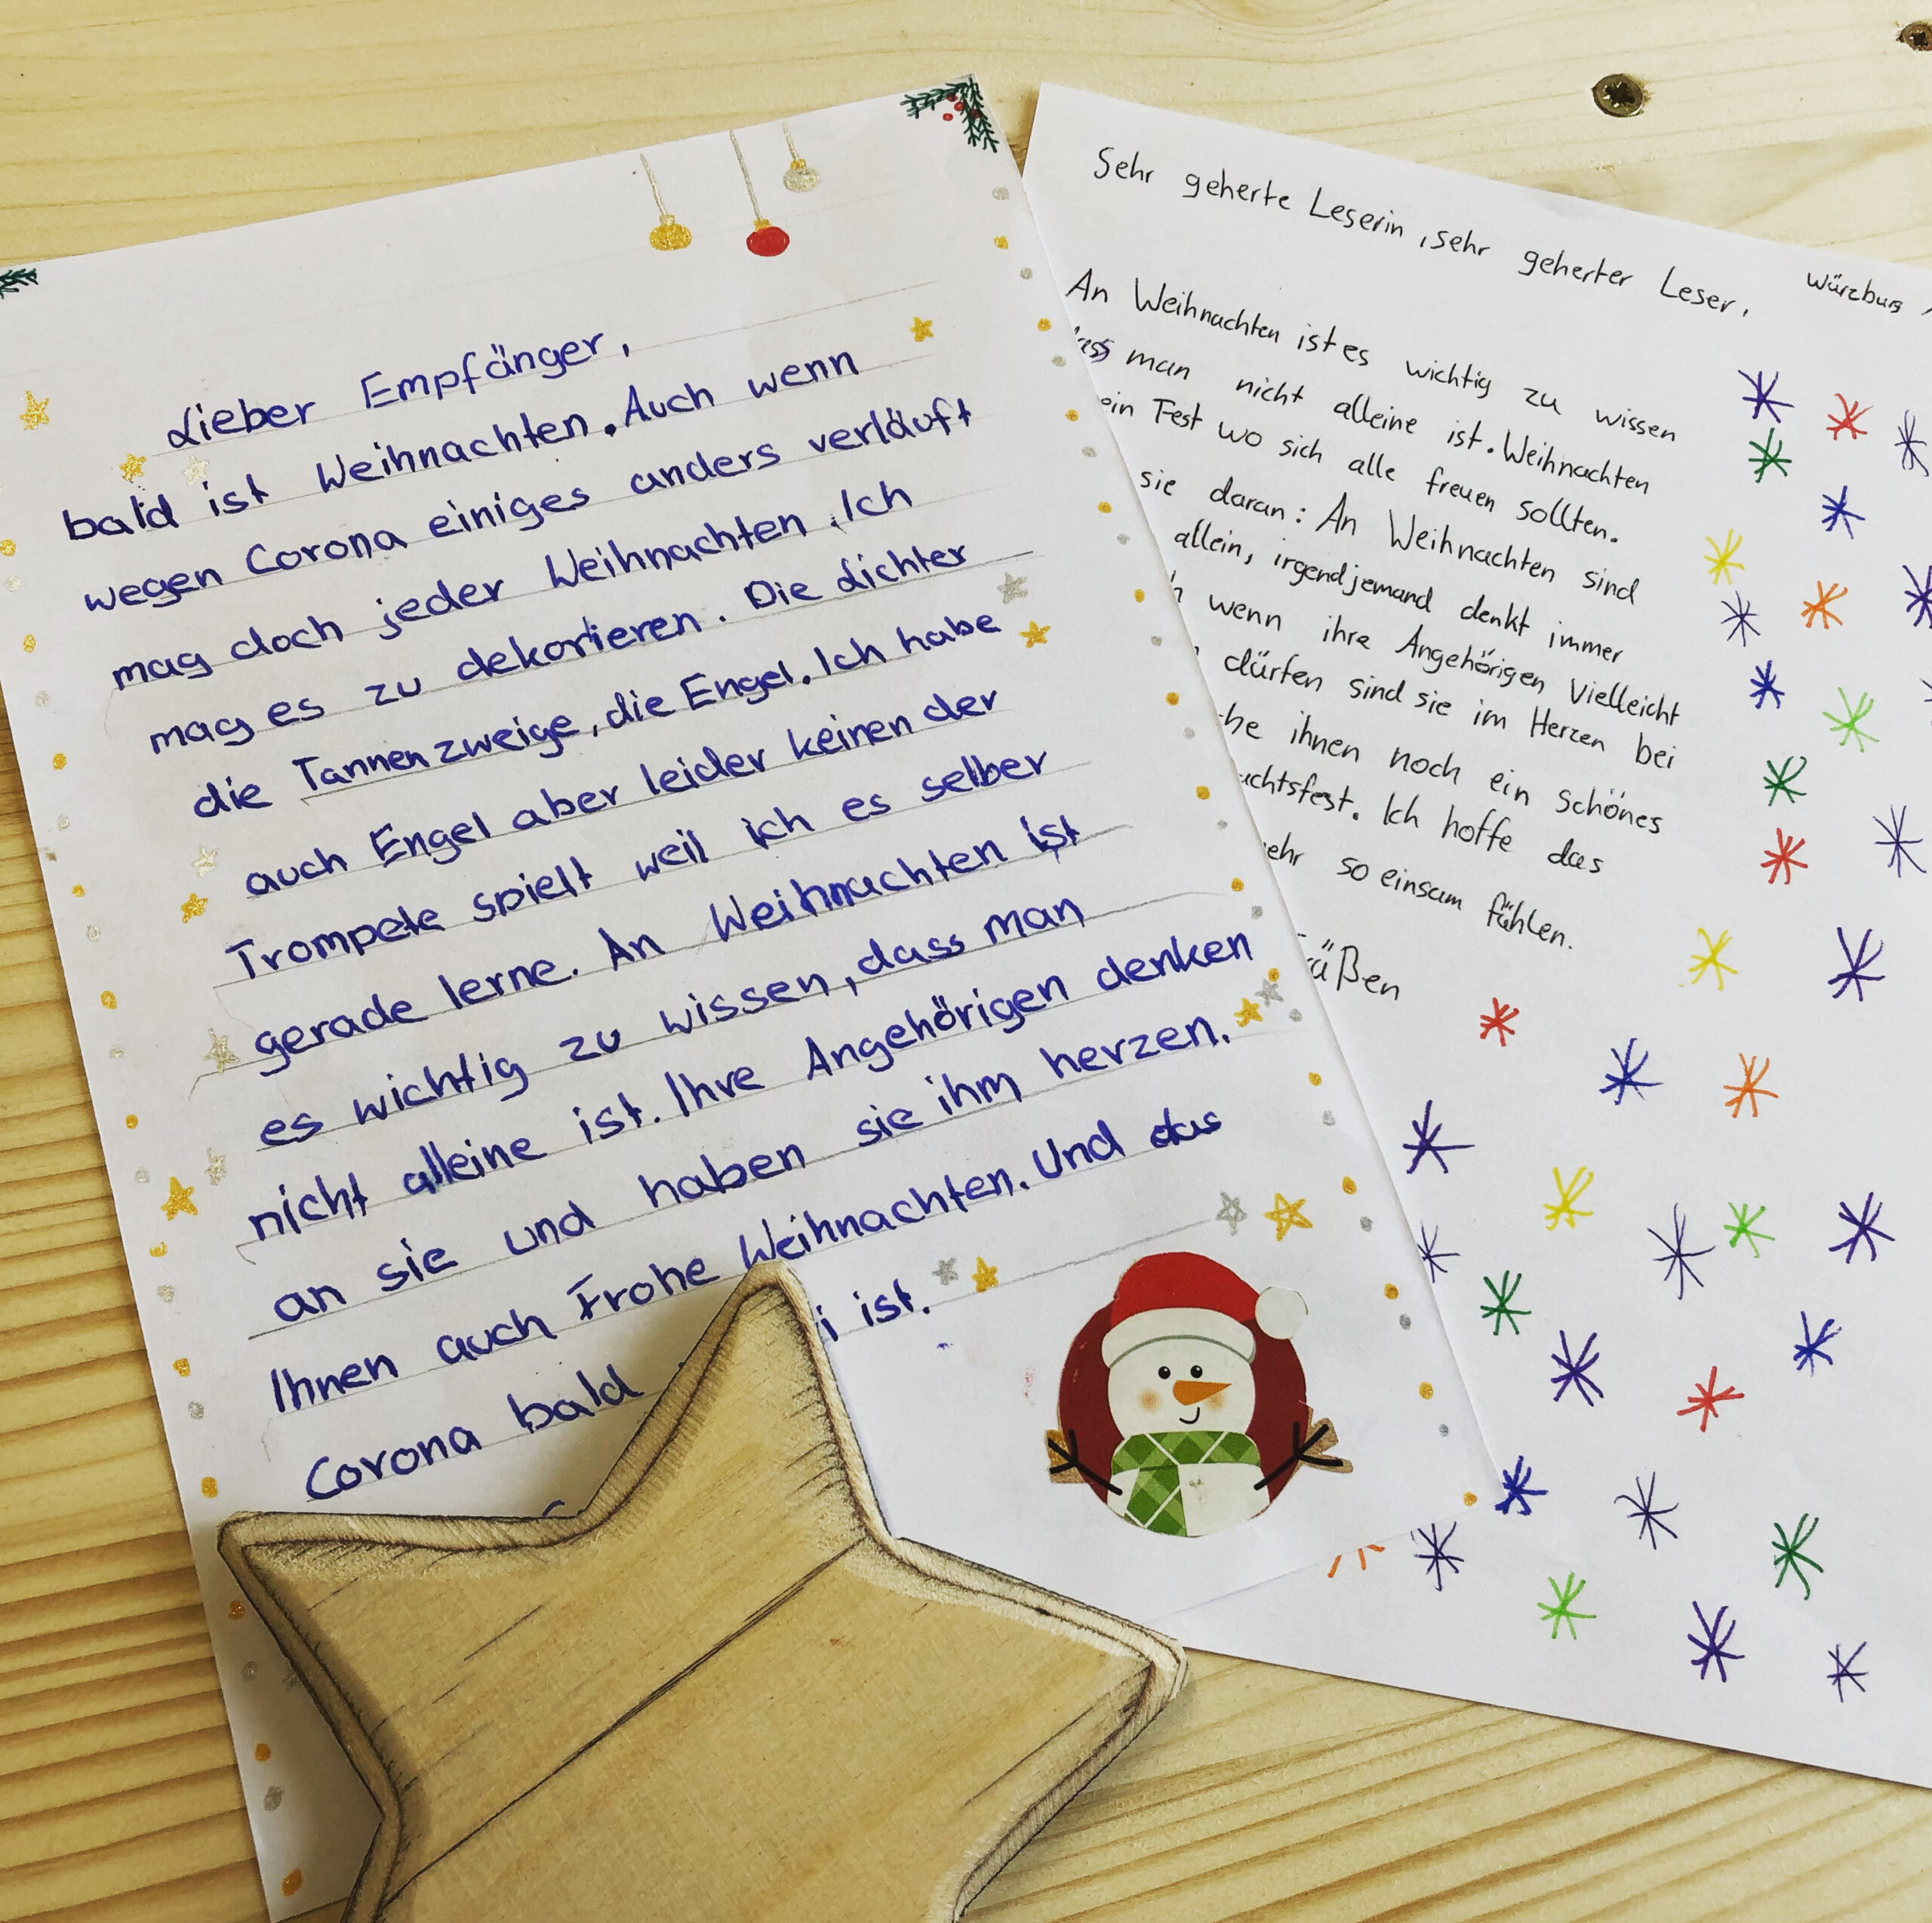 Lieber Empfänger,
bald ist Weihnachten. Auch wenn
wegen Corona einiges anders verläuft
mag doch jeder Weihnachten. Ich
mag es zu dekorieren. Die Lichter
die Tannenzweige, die Engel. Ich habe
auch Engel aber leider keinen der
Trompete spielt weil ich es selber
gerade lerne. An Weihnachten ist
es wichtig zu wissen, dass man
nicht alleine ist. Ihre Angehörigen denken
an sie und haben sie ihm herzen.
Ihnen auch Frohe Weihnachten. Und das
Corona bald i ist.
Sehr geherte Leserin, sehr geherter Leser,
Würzburg
An Weihnachten ist es wichtig zu wissen
ass man nicht alleine ist. Weihnachten
ein Fest wo sich alle freuen sollten.
sie daran: An Weihnachten sind
allein, irgendjemand denkt immer
wenn ihre Angehörigen vielleicht
dürfen sind sie im Herzen bei
he ihnen noch ein schönes
achtsfest. Ich hoffe das
ehr so einsam fühlen.
üßen